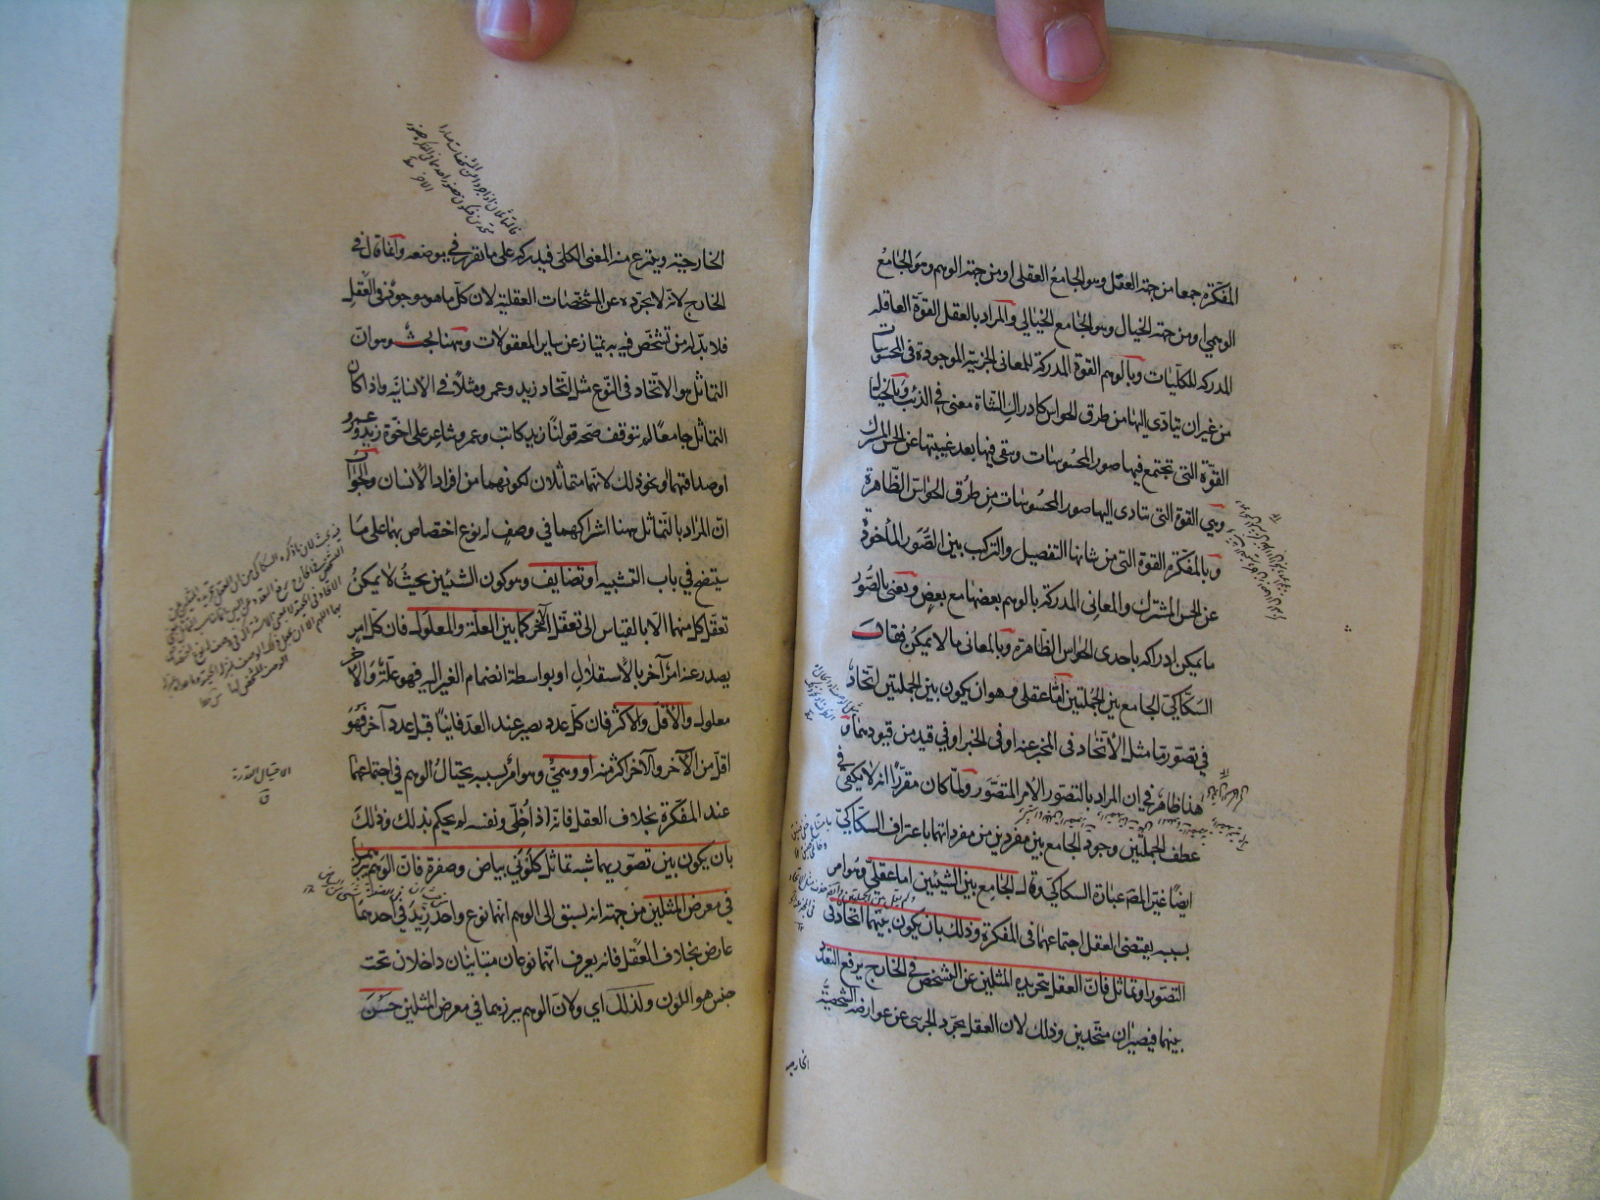 المفكرة جمعا من جهة العقل وهو الجامع العقلى او من جهة الوهم وهو الجامع
الوهمى او من جهة الخيال وهو الجامع الخيالي والمراد بالعقل القوة العاقلة
المدركة للكليات وبالوهم القوة المدركة للمعانى الجزئية الموجودة فى المحسوسات
من غير ان يتادى اليها من طرق الحواس كادراك الشاة معنى فى الذئب وبالخيال
القوة التى تجتمع فيها صور المحسوسات وتبقى فيها بعد غيبتها عن الحس المشترك
وهى القوة التى يتادى اليها صور المحسوسات من طرق الحواس الظاهرة
وبالمفكرة القوة التى من شانها التفصيل والتركيب بين الصور المأخوذة
عن الحس المشترك والمعانى المدركة بالوهم بعضها مع بعض ونعنى بالصور
ما يمكن ادراكه باحدى الحواس الظاهرة وبالمعانى ما لا يمكن فقال
السكاكي الجامع بين الجملتين اما عقلى وهو ان يكون بين الجملتين اتحاد
فى تصور ما مثل الاتحاد فى المخبر عنه او فى الخبر او فى قيد من قيودهما و
هذا ظاهر فى ان المراد بالتصور الامر المتصور ولما كان مقررا انه لا يكفى فى
عطف الجملتين وجود الجامع بين مفردين من مفرداتهما باعتراف السكاكي
ايضا غير المص عبارة السكاكي وقال الجامع بين الشيئين اما عقلى وهو امر
بسببه يقتضى العقل اجتماعهما فى المفكرة وذلك بان يكون بينهما اتحاد فى
التصور او تماثل فان العقل بتجريده المثلين عن التشخص فى الخارج يرفع التعدد
بينهما فيصيران متحدين وذلك لان العقل يجرد الجزئى عن عوارضه الشخصية
الخارجية
الخارجية وينتزع منه المعنى الكلى فيدركه على ما تقرر فى موضعه وانما قال فى
الخارج لانه لا يجرده عن المشخصات العقلية لان كل ما هو موجود فى العقل
فلا بد له من تشخص فيه به يمتاز عن ساير المعقولات وههنا بحث وهو ان
التماثل هو الاتحاد فى النوع مثل اتحاد زيد وعمرو مثلا فى الانسانية واذا كان
التماثل جامعا لم تتوقف صحة قولنا زيد كاتب وعمرو شاعر على اخوة زيد وعمرو
او صداقتهما او نحو ذلك لانهما متماثلان لكونهما من افراد الانسان والجواب
ان المراد بالتماثل ههنا اشتراكهما فى وصف له نوع اختصاص بهما على ما
سيتضح فى باب التشبيه او تضايف وهو كون الشيئين بحيث لا يمكن
تعقل كل منهما الا بالقياس الى تعقل الآخر كما بين العلة والمعلول فان كل امر
يصدر عنه امر آخر بالاستقلال او بواسطة انضمام الغير اليه فهو علة والآخر
معلول والاقل والاكثر فان كل عدد يصير عند العد فانيا قبل عدد آخر فهو
اقل من الآخر والآخر اكثر منه او وهمى وهو امر بسببه يحتال الوهم فى اجتماعهما
عند المفكرة بخلاف العقل فانه اذا خلى ونفسه لم يحكم بذلك وذلك
بان يكون بين تصوريهما شبه تماثل كلونى بياض وصفرة فان الوهم يبرزهما
فى معرض المثلين من جهة انه يسبق الى الوهم انهما نوع واحد زيد فى احدهما
عارض بخلاف العقل فانه يعرف انهما نوعان متباينان داخلان تحت
جنس هو اللون ولذلك اي ولان الوهم يبرزهما فى معرض المثلين حسن